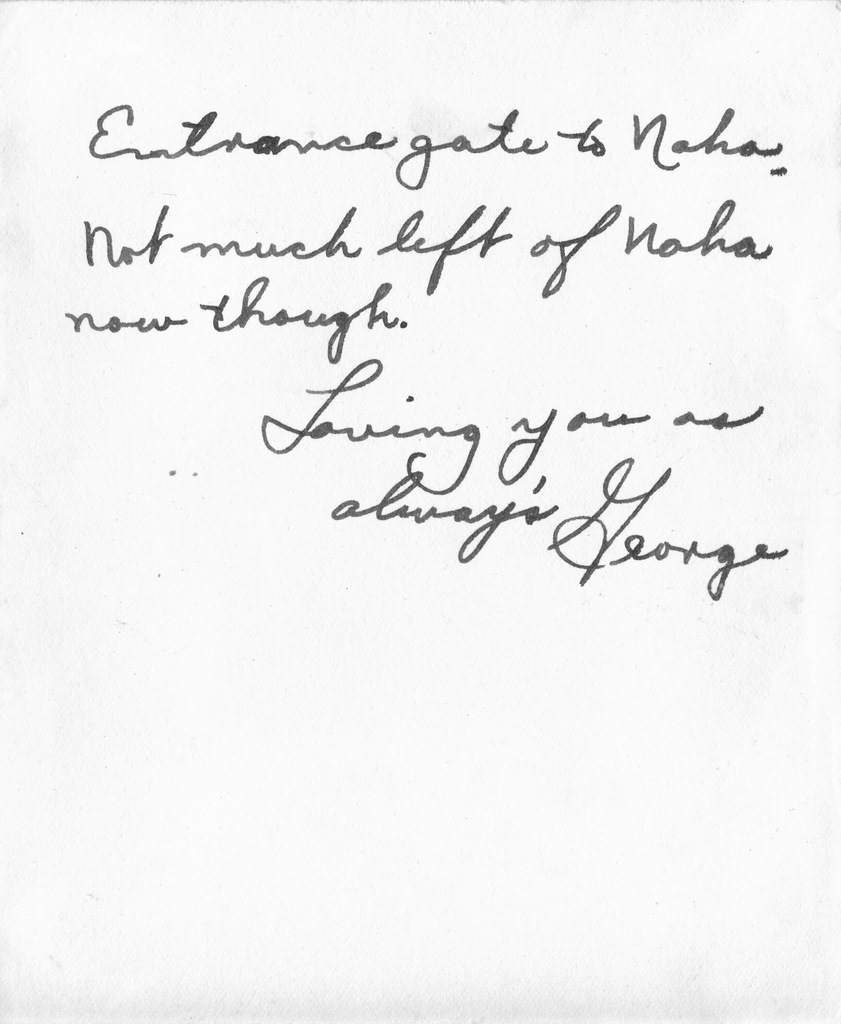 Entrance gate to Naha.
Not much left of Naha
now though.
Loving you as
alway's George